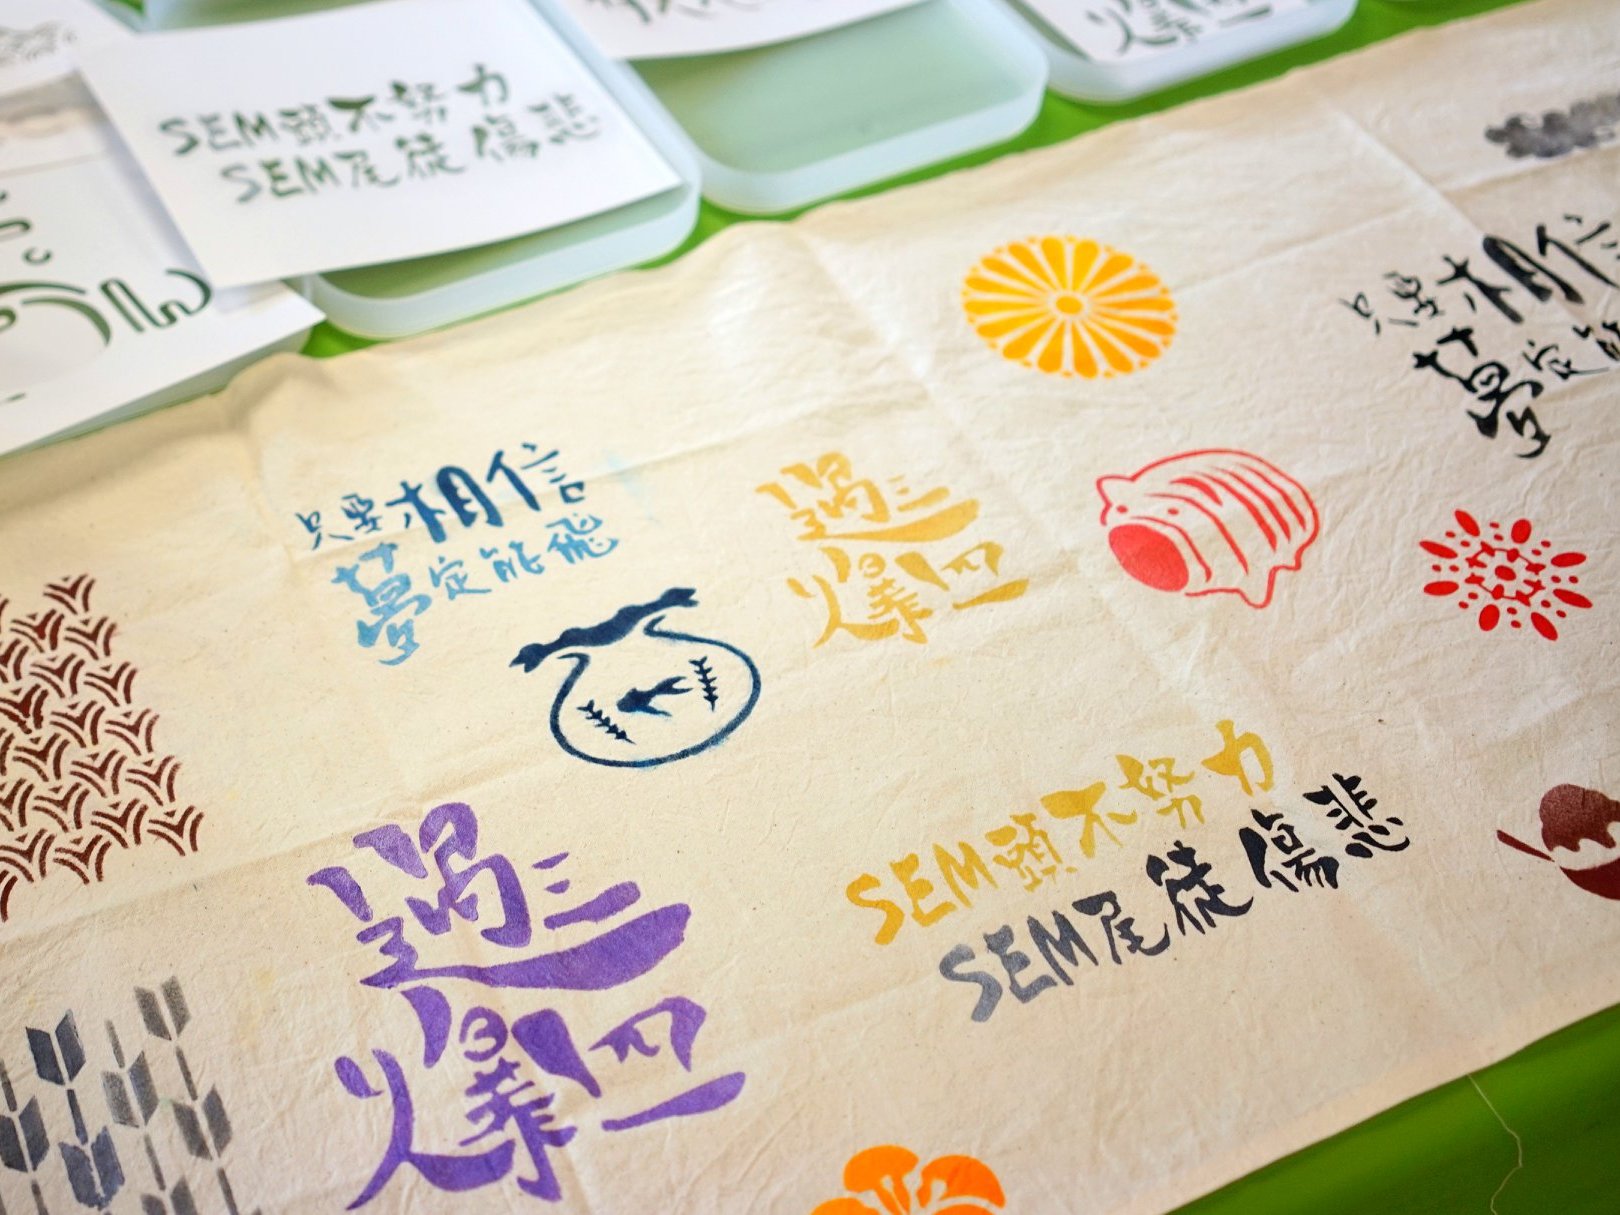 SEM頭不努力
SEM尾徒傷悲
只要相信
夢定能
只要相信
夢定能飛
過三
爆四
SEM頭不努力
SEM尾徒傷悲
過三
爆四